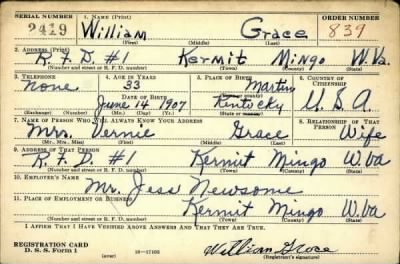 SERIAL NUMBER 1. NAME (Print) ORDER NUMBER
2419 William Grace 839
(First) (Middle) (Last)
2. ADDRESS (Print)
R.F.D. #1 Kermit Mingo W.Va.
(Number and street or R. F. D. number) (Town) (County) (State)
3. TELEPHONE 4. AGE IN YEARS 5. PLACE OF BIRTH 6. COUNTRY OF CITIZENSHIP
None 33 Martin U.S.A.
DATE OF BIRTH
June 14 1907 Kinticky
(Exchange) (Number) (Mo.) (Day) (Yr.)
7. NAME OF PERSON WHO WILL ALWAYS KNOW YOUR ADDRESS 8. RELATIONSHIP OF THAT PERSON
Mrs. Vernie Grace Wife
(Mr., Mrs., Miss) (First) (Middle) (Last)
9. ADDRESS OF THAT PERSON
R.F.D. #1 Kermit Mingo W.Va
(Number and street or R. F. D. number) (Town) (County) (State)
10. EMPLOYER'S NAME
Mr. Jess Newsome
11. PLACE OF EMPLOYMENT OR BUSINESS
Kermit Mingo W.Va
(Number and street or R. F. D. number) (Town) (County) (State)
I AFFIRM THAT I HAVE VERIFIED ABOVE ANSWERS AND THAT THEY ARE TRUE.
REGISTRATION CARD
D. S. S. Form 1 William Grace
(Registrant's signature)